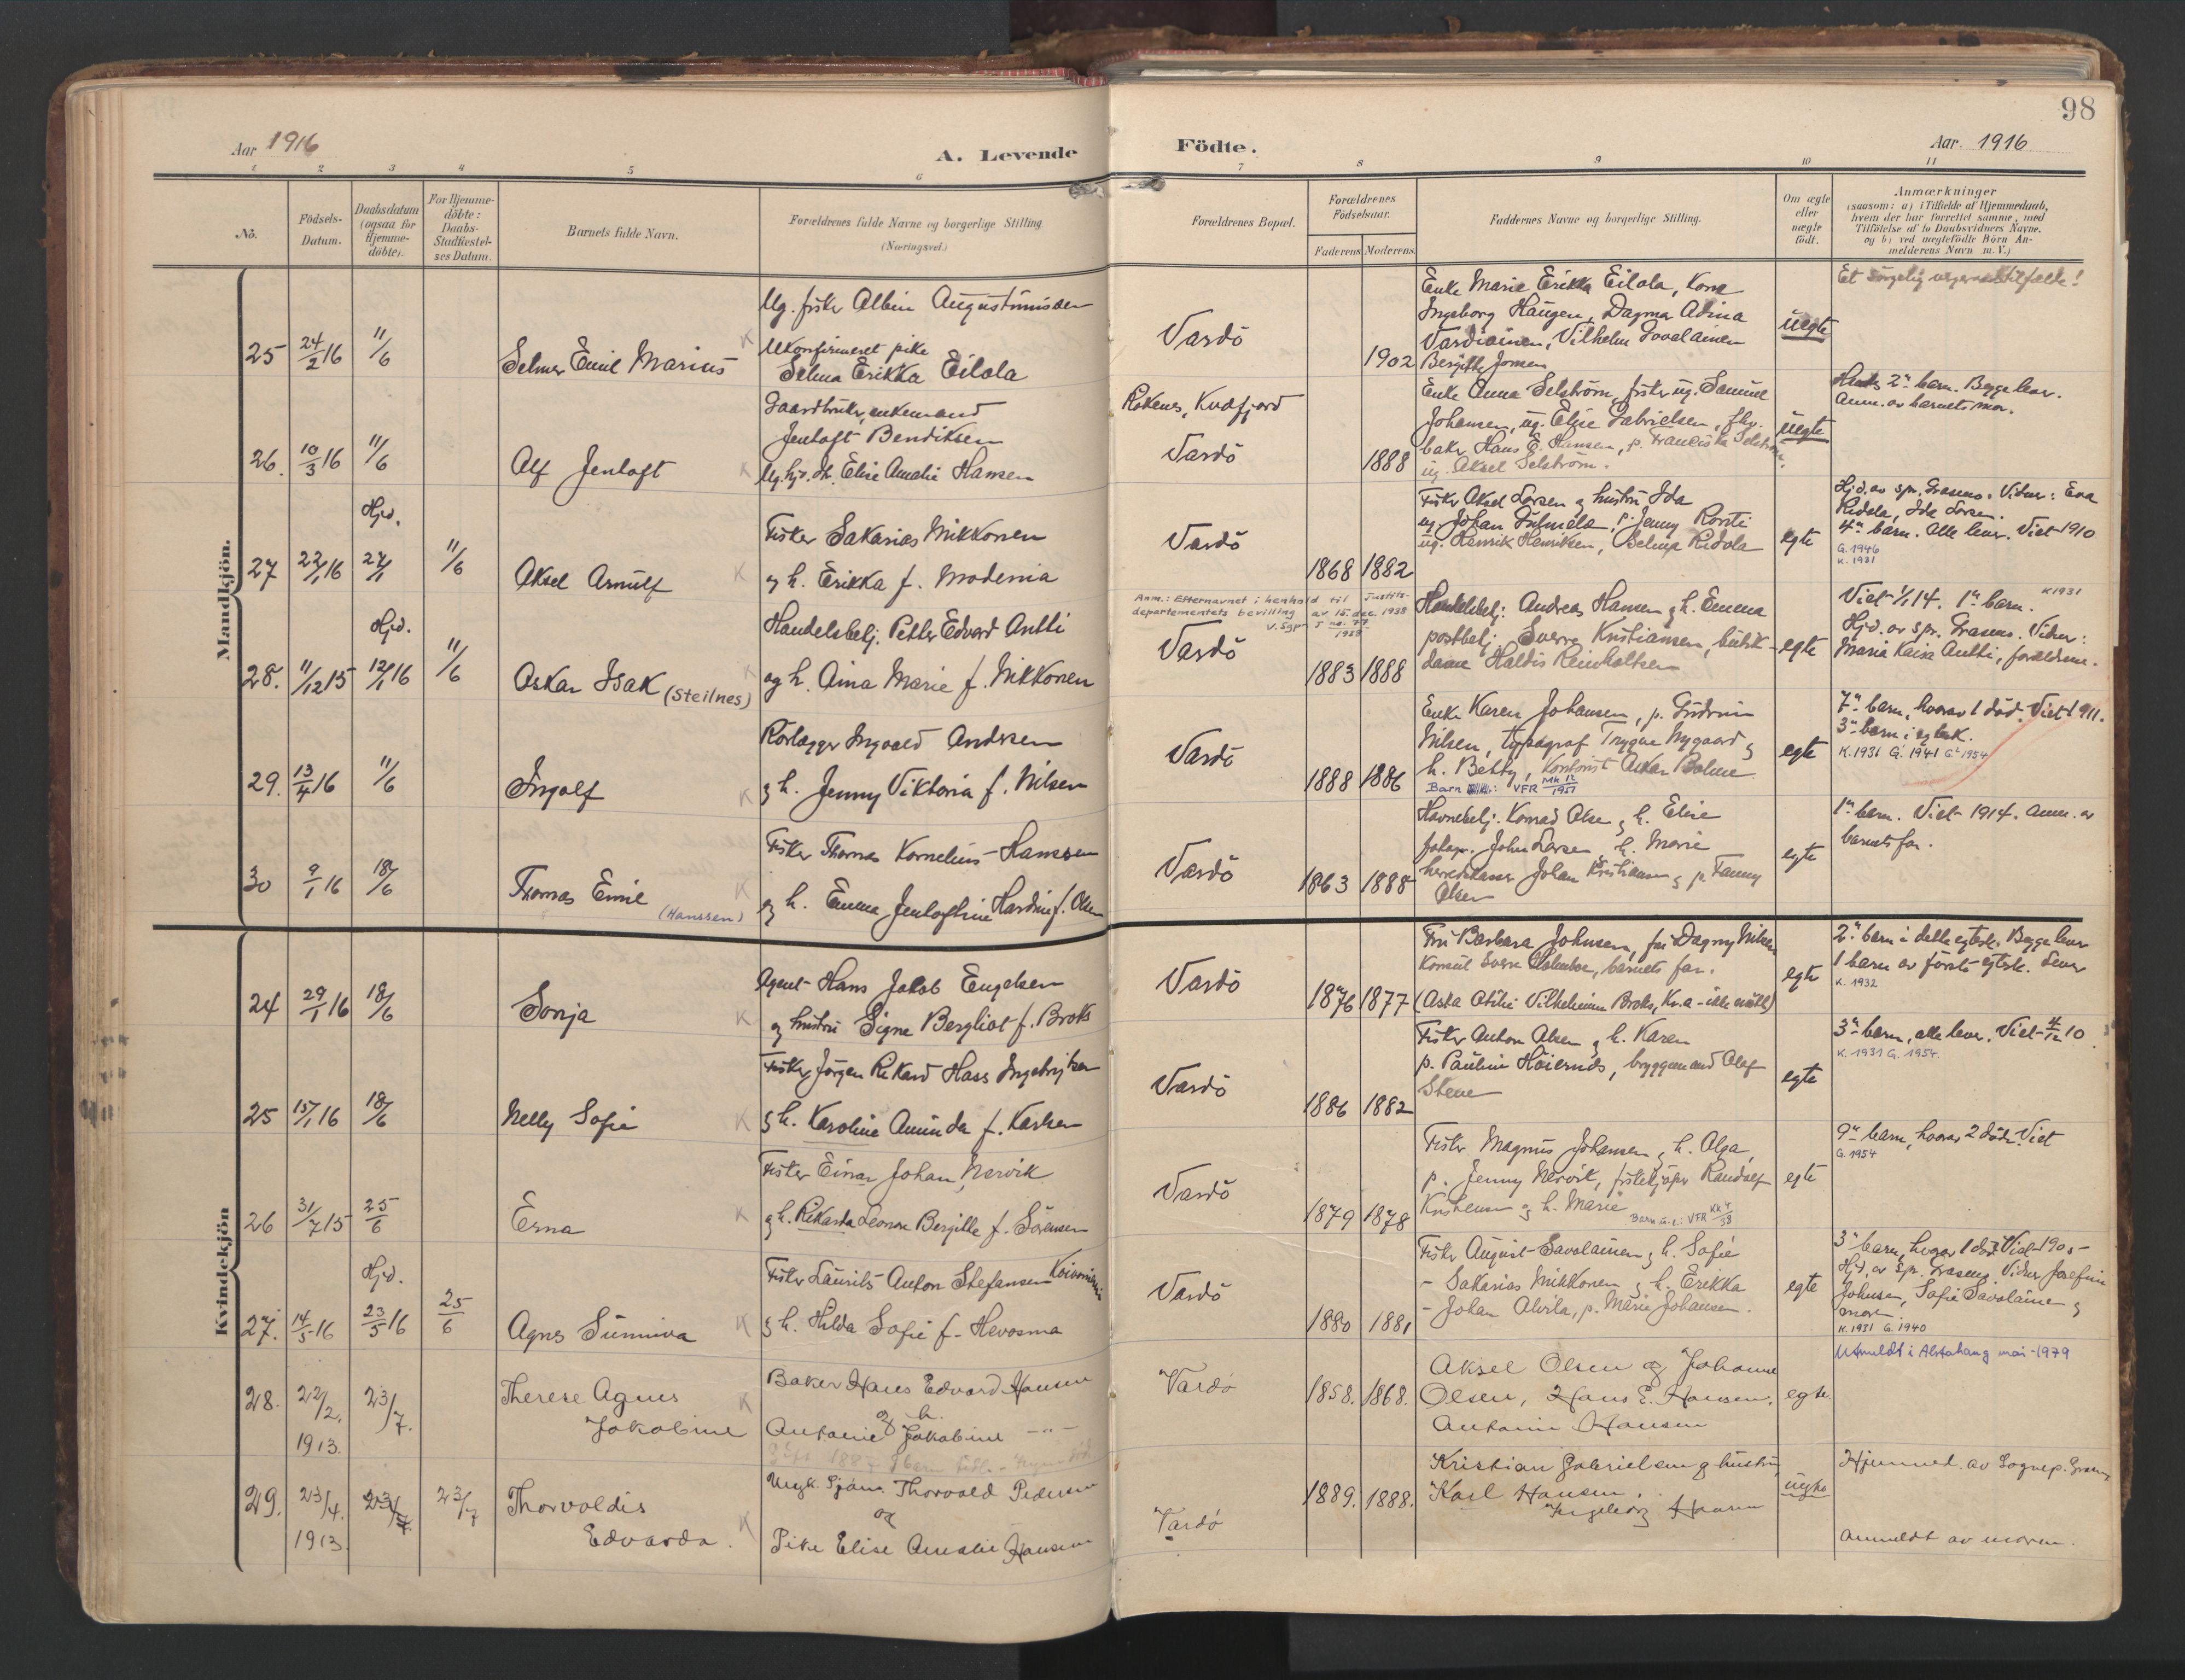 98
Aar 1916
A. Levende
Födte.
Aar. 1916
1 2 3 4 5 6 7 8 9 10 11
No.
Födsels-
Datum.
Daabsdatum
(ogsaa for
Hjemme-
döbte).
For Hjemme-
döbte:
Daabs-
Stadfæstel-
ses Datum.
Barnets fulde Navn.
Forældrenes fulde Navne og borgerlige Stilling
(Næringsvei.)
Forældrenes Bopæl.
Forældrenes
Födselsaar.
Faderens Moderens
Faddernes Navne og borgerlige Stilling.
Om ægte
eller
uægte
födt.
Anmærkninger
(saasom: a) i Tilfælde af Hjemmedaab,
hvem der har forrettet samme, med
Tilföielse af to Daabsvidners Navne.
og b) ved uægtefödte Börn An-
melderens Navn m. V.)
Mandkjön.
25 24/2 16 11/6
Selmer Emil Marius K
Ug. fisker Albin Augustinussen
Ukonfirmeret pike
Selma Erikka Eilola
Vardö
1902
Enke Marie Erikka Eilola, Kona
Ingeborg Haugen, Dagma Adina
Vardiainen, Vilhelm
Bergitte Jensen
uegte
Et sörgelig
26. 10/3 16 11/6
Alf Jenloft K
Gaardbruker, enkemand
Jenloft Bendiksen
Ug. hj.d. Elise Amalie Hansen
Rökenes, Kvæfjord
Vardö
1888
Enke Anna Selström, fisker ug. Samuel
Johansen, ug. Elise Gabrielsen, fhv.
baker Hans E. Hansen, p. Franciska Selström,
ug. Aksel Selström.
uegte
2n barn. Begge lever.
Anm. av barnets mor.
27 22/1 16 Hjd. 24/1 11/6
Aksel Arnulf K
Fisker Sakarias Mikkonen
og h. Erikka f. Modenia
Vardö
1868 1882
Fisker Aksel Larsen og hustru Ida
ug. Johan p. Jenny Rorsti
ug. Henrik Henriksen, Selma Ridola
egte
Hjd. av spr. Grasmo. Vidner: Eva
Ridola, Ida Larsen.
4n barn. Alle lever. Viet 1910
G. 1946
K. 1931
28. 11/12 15 Hjd. 12/1 16 11/6
Oskar Isak (Steilnes) K
Handelsbetj. Petter Edvard Antti
og h. Aina Marie f. Mikkonen
Anm.: Efternavnet i henhold til Justits-
departementets bevilling av 15. dec. 1938
Vardö
1883 1888
Handelsbetj. Andreas Hansen og h. Emma
postbetj. Sverre Kristiansen, butik-
dame Haldis Reinholtsen
egte
Viet 1/1 14. 1n barn. K1931
Hjd. av spr. Grasmo. Vidner:
Maria Kaisa Antti, forældrene.
29. 13/4 16 11/6
Ingolf K
Rörlægger Ingvald Andersen
og h. Jenny Viktoria f. Nilsen
Vardö
1888 1886
Enke Karen Johansen, p. Gudrun
Nilsen, typograf Trygve Nygaard og
h. Betty, kontorist Oskar Bohne
egte
7n barn, hvorav 1 död. Viet 1911.
3n barn i egtesk.
K. 1931 G. 1941 G2 1954
30 9/1 16 18/6
Thomas Emil (Hanssen) K
Fisker Thomas Kornelius Hanssen
og h. Emma Jentoftine Hardine f. Olsen
Vardö
1863 1888
Havnebetj. Konrad Olsen og h. Elise
fotogr. John Larsen, h. Marie
herredskasser Johan Kristiansen og p. Fanny
Olsen
egte
1n barn. Viet 1914. Anm. av
barnets far.
Kvindekjön
24 29/1 16 18/6
Sonja K
Agent Hans Jakob Engelsen
og hustru Signe Bergliot f. Broks
Vardö
1876 1877
Fru Barbara Johnsen, fru Dagny Nilsen
Konsul Sverre Holmboe, barnets far.
(Asta Otilie Vilhelmine Broks, Kr.a - ikke mött)
egte
2n barn i dette egtesk. Begge lever
1 barn av förste egtesk. lever
K. 1932
25 15/1 16 18/6
Nelly Sofie K
Fisker Jörgen Rikard Hass Ingebrigtsen
og h. Karoline Aminda f. Karlsen
Vardö
1886 1882
Fisker Anton Olsen og h. Karen
p. Pauline Höiernds, bryggemand Olaf
Stene
egte
3n barn, alle lever. Viet 4/12 10
K. 1931 G. 1954.
26 31/7 15 25/6
Erna K
Fisker Einar Johan Nervik
og h. Rikarda Leonore Bergitte f. Sörensen
Vardö
1879 1878
Fisker Magnus Johansen og h. Olga,
p. Jenny Nervik, fiskekjöper Randolf
Kristensen og h. Marie
egte
9n barn, hvorav 2 döde. Viet
G. 1954
27. 14/5 16 Hjd. 23/5 16 25/6
Agnes Sunniva K
Fisker Laurits Anton Stefansen Koivoniemi
og h. Hilda Sofie f. Hevosma
Vardö
1880 1881
Fisker August Savolainen og h. Sofie
- Sakarias Mikkonen og h. Erikka
- Johan Alvila, p. Marie Johansen.
egte
3n barn, hvorav 1 död. Viet 1905-
Hjd. av spr. Grasmo. Vidner Josefine
Johnsen, Sofie Savolainen og
moren
K. 1931 G. 1940
28. 22/2. 1913. 23/7.
Therese Agnes
Jakobine K
Baker Hans Edvard Hansen
og h.
Antonie Jakobine -"-
Vardö
1858. 1868.
Aksel Olsen og Johanne
Olsen, Hans E. Hansen.
Antonie Hansen
egte.
Utmeldt i Alstahaug mai 1979
29. 23/4. 1913. 23/7
Thorvaldis
Edvarda. K
Ungk. Sjöm. Thorvald Pedersen
og
Pike Elise Amalie Hansen
Vardö
1889. 1888.
Kristian Gabrielsen og hustru,
Karl Hansen.
Ingeborg Hansen
uegte
Hjemmed. av Sognepr. Grasmo
Anmeldt av moren.